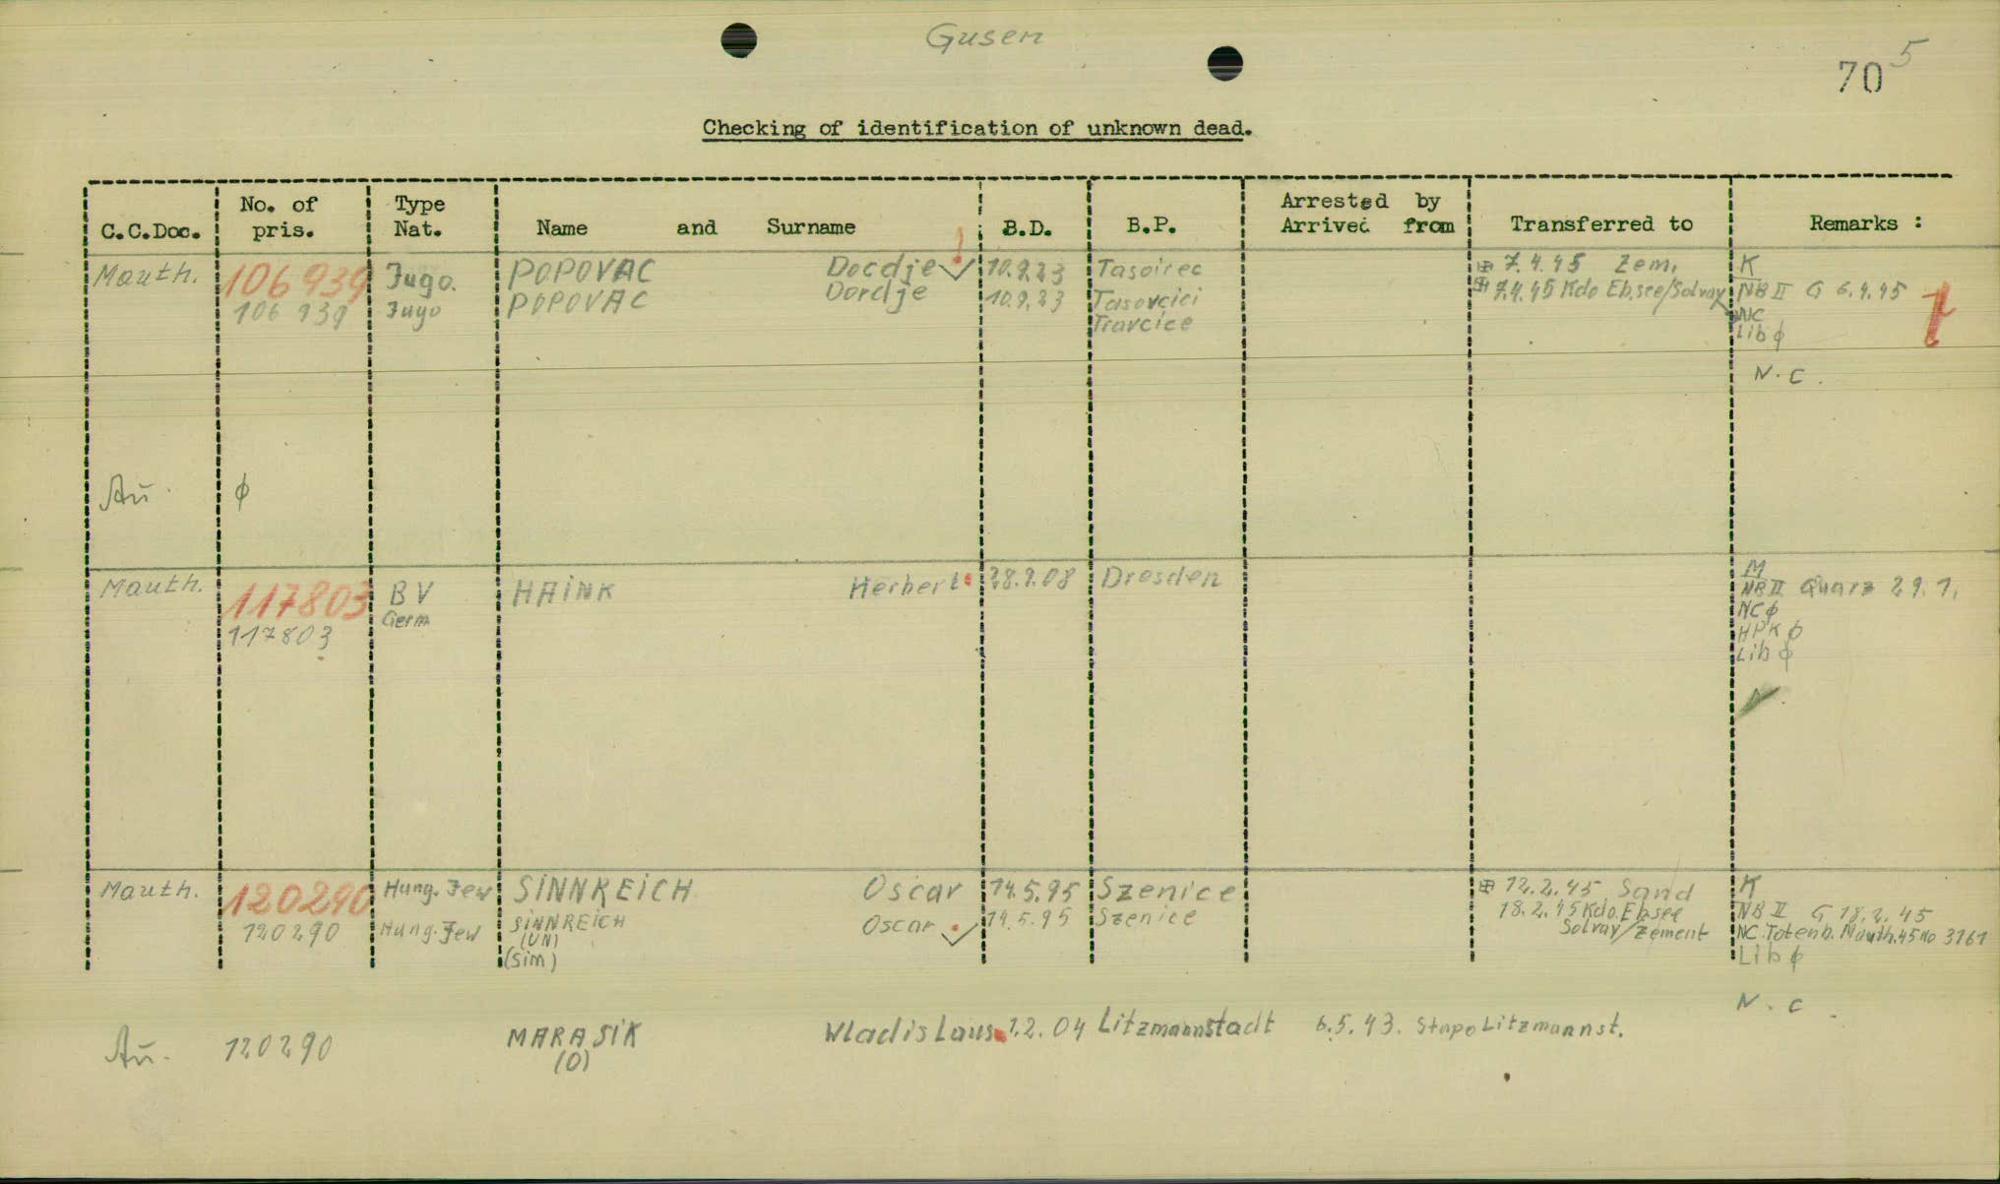 Gusen
70 5
Checking of identification of unknown dead.
C.C.Doc. No. of pris. Type Nat. Name and Surname B.D. B.P. Arrested by Arrived from Transferred to Remarks :
Mauth. 106939 Jugo. POPOVAC Docdje 10.9.23 Tasoirec ⊞ 7.4.45 Zem. K
106 939 Jugo POPOVAC Dordje 10.9.23 Tasovcici ⊞ 7.4.45 Kdo Eb.see/Solvay NB II G 6.4.45
Travcice NC
Lib ϕ
N.C.
Au. ϕ
Mauth. 117803 BV HAINK Herbert 28.9.08 Dresden M
117803 Germ NB II Quarz 29.1.
NC ϕ
HPK ϕ
Lib ϕ
Mauth. 120290 Hung. Jew SINNREICH Oscar 14.5.95 Szenice ⊞ 12.2.45 Sand K
120290 Hung. Jew SINNREICH Oscar 14.5.95 Szenice 18.2.45 Kdo. Ebsee NB II G 18.2.45
(UN) Solvay/Zement NC Totenb. Mauth. 45 No 3161
(Sim) Lib ϕ
N.C.
Au. 120290 MARASIK Wladislaus 1.2.04 Litzmannstadt 6.5.43. Stapo Litzmannst.
(O)